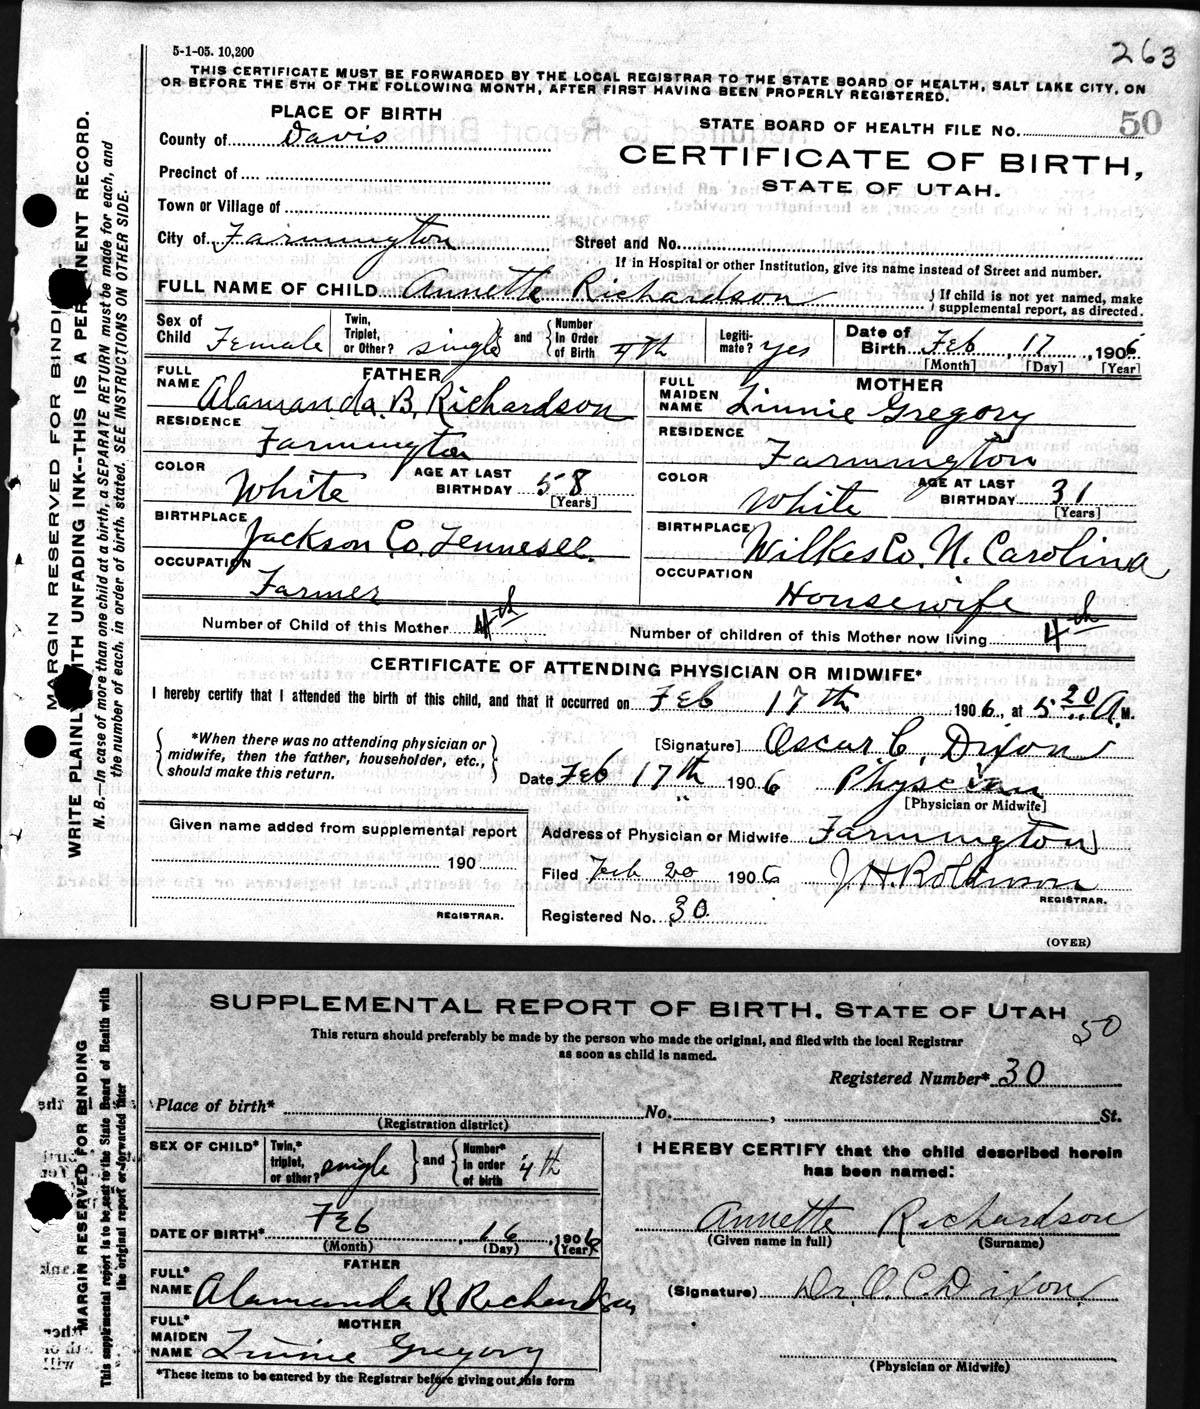 5-1-05. 10,200
263
THIS CERTIFICATE MUST BE FORWARDED BY THE LOCAL REGISTRAR TO THE STATE BOARD OF HEALTH, SALT LAKE CITY, ON
OR BEFORE THE 5TH OF THE FOLLOWING MONTH, AFTER FIRST HAVING BEEN PROPERLY REGISTERED.
PLACE OF BIRTH
STATE BOARD OF HEALTH FILE NO. 50
County of Davis
CERTIFICATE OF BIRTH,
STATE OF UTAH.
Precinct of
Town or Village of
City of Farmington Street and No.
If in Hospital or other Institution, give its name instead of Street and number.
FULL NAME OF CHILD Annette Richardson } If child is not yet named, make
supplemental report, as directed.
Sex of Child Female Twin, Triplet, or Other? single } and { Number In Order of Birth 4th Legiti-mate? yes Date of Birth Feb, 17, 1906
[Month] [Day] [Year]
FATHER
FULL NAME Alamanda B. Richardson
RESIDENCE
Farmington
COLOR White AGE AT LAST BIRTHDAY 58
[Years]
BIRTHPLACE
Jackson Co. Tennesee.
OCCUPATION
Farmer
MOTHER
FULL MAIDEN NAME Linnie Gregory
RESIDENCE
Farmington
COLOR White AGE AT LAST BIRTHDAY 31
[Years]
BIRTHPLACE
Wilkes Co. N. Carolina
OCCUPATION
Housewife
Number of Child of this Mother 4th Number of children of this Mother now living 4th
CERTIFICATE OF ATTENDING PHYSICIAN OR MIDWIFE*
I hereby certify that I attended the birth of this child, and that it occurred on Feb 17th 1906, at 5 20 A. M.
{ *When there was no attending physician or
midwife, then the father, householder, etc.,
should make this return. }
[Signature] Oscar C. Dixon
Date Feb 17th 1906 Physcian
[Physician or Midwife]
Given name added from supplemental report
190
REGISTRAR.
Address of Physician or Midwife Farmington
Filed Feb 20 1906 J. H. Robinson
REGISTRAR.
Registered No. 30
(OVER)
MARGIN RESERVED FOR BINDI
WRITE PLAINL ITH UNFADING INK--THIS IS A PER NENT RECORD.
N. B.—In case of more than one child at a birth, a SEPARATE RETURN must be made for each, and
the number of each, in order of birth, stated. SEE INSTRUCTIONS ON OTHER SIDE.
SUPPLEMENTAL REPORT OF BIRTH. STATE OF UTAH
50
This return should preferably be made by the person who made the original, and filed with the local Registrar
as soon as child is named.
Registered Number* 30
Place of birth* No. , St.
(Registration district)
SEX OF CHILD* Twin,* triplet, or other? single } and { Number* in order of birth 4th
DATE OF BIRTH* Feb, 16, 1906
(Month) (Day) (Year)
FATHER
FULL* NAME Alamanda B. Richardson
MOTHER
FULL* MAIDEN NAME Linnie Gregory
*These items to be entered by the Registrar before giving out this form
I HEREBY CERTIFY that the child described herein
has been named:
Annette Richardson
(Given name in full) (Surname)
(Signature) Dr. O. C. Dixon
(Physician or Midwife)
MARGIN RESERVED FOR BINDING
This supplemental report is to be sent to the State Board of Health with
the original report or forwarded later